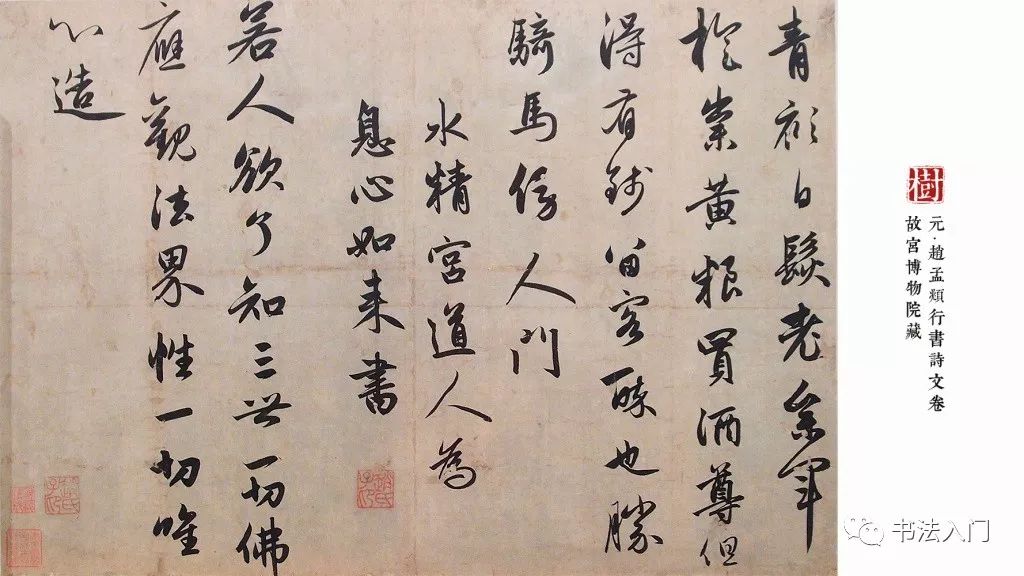 青衫白髮老參軍
旋糶黃粮買酒尊但
得有錢留客醉也勝
騎馬傍人門
水精宮道人為
息心如来書
若人欲了知三世一切佛
應觀法界性一切唯
心造
樹
元·趙孟頫行書詩文卷
故宮博物院藏
书法入门